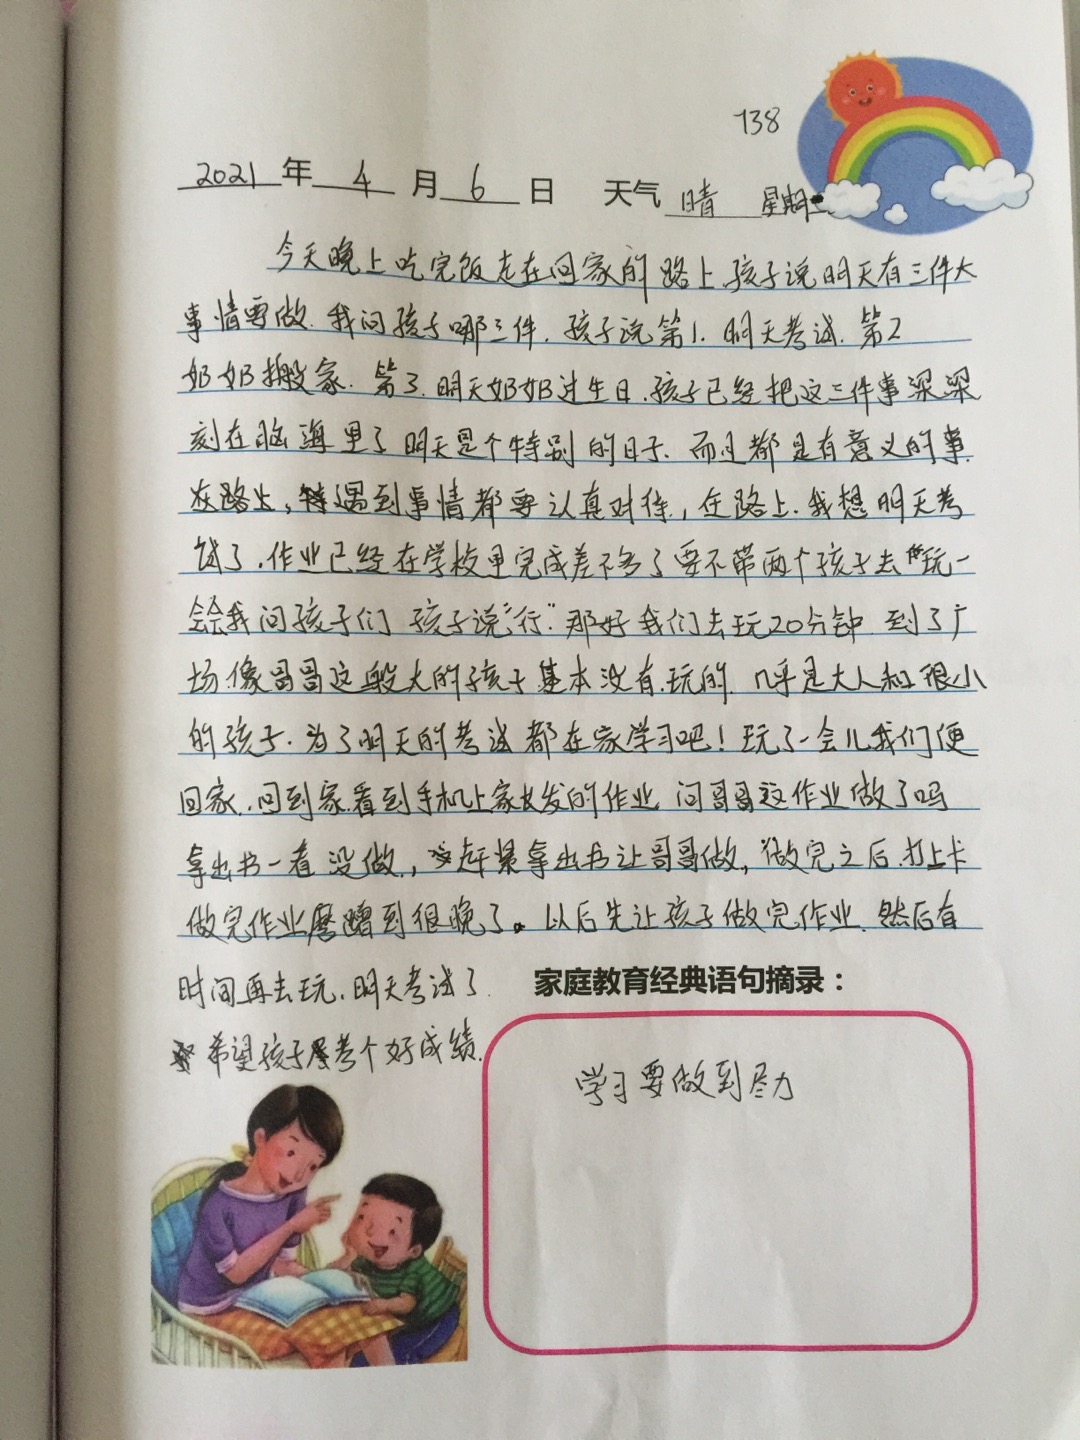 738
2021年 4 月 6 日 天气 晴 星期二
今天晚上吃完饭走在回家的路上.孩子说明天有三件大
事情要做.我问孩子哪三件.孩子说第1.明天考试.第2
奶奶搬家.第3.明天奶奶过生日.孩子已经把这三件事深深
刻在脑海里了明天是个特别的日子.而且都是有意义的事.
在路上,遇到事情都要认真对待,在路上.我想明天考
试了.作业已经在学校里完成差不多了要不带两个孩子去玩一
会我问孩子们 孩子说“行”那好我们去玩20分钟 到了广
场像哥哥这般大的孩子基本没有玩的.几乎是大人和很小
的孩子.为了明天的考试都在家学习吧!玩了一会儿我们便
回家.回到家看到手机上家长发的作业 问哥哥这作业做了吗
拿出书一看没做,赶紧拿出书让哥哥做,做完之后.打上卡
做完作业磨蹭到很晚了。以后先让孩子做完作业.然后有
时间再去玩.明天考试了.
希望孩子考个好成绩.
家庭教育经典语句摘录：
学习要做到尽力